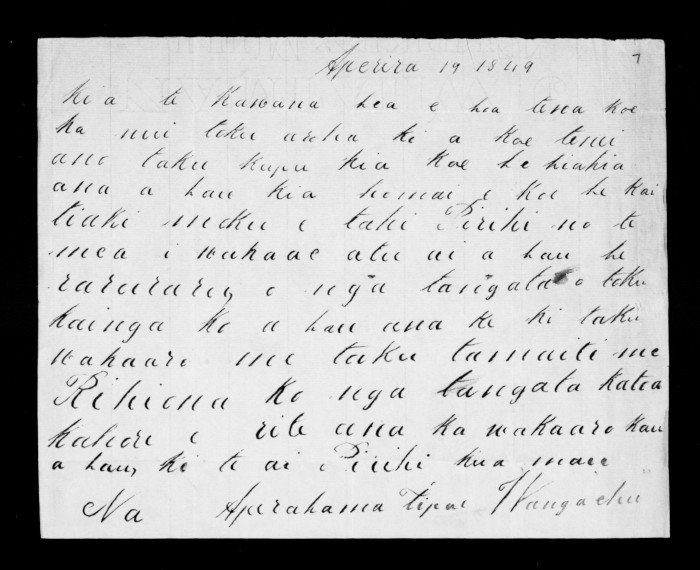 Aperira 19 1849
7
kia te Kawana hea e hoa tena koe
ka nui toku aroha ki a koe tenei
ano taku kupu kia koe he hiahia
ana a hau kia homai e koe he kai
tiaki moku e tahi Pirihi no te
mea i wakaae atu ai a hau he
raruraru o nga tangata o toku
kainga ko a hau ana ke ki taku
wakaaro me taku tamaiti me
Rihiona ko nga tangata katoa
kahore e rite ana ka wakaaro kau
a hau, ki te ai Pirihi kua mau
Na Aperahama Tipae Wangaehu